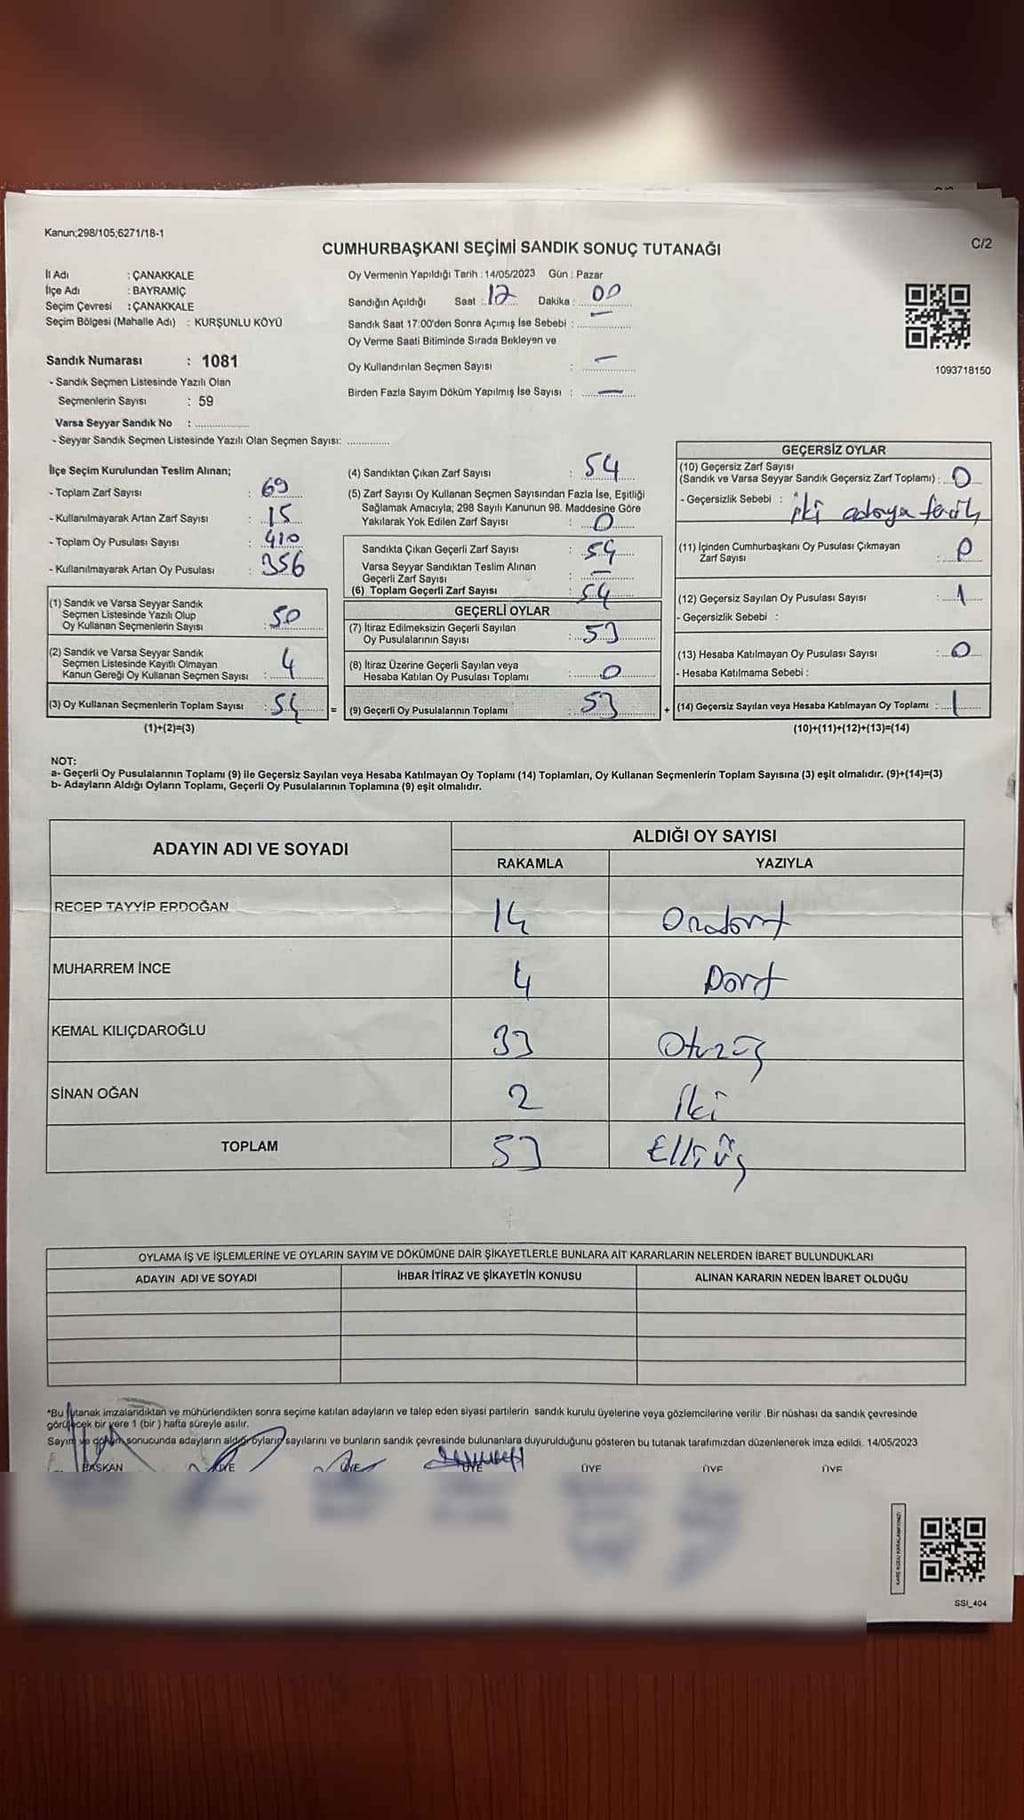 Kanun;298/105;6271/18-1
C/2
CUMHURBAŞKANI SEÇİMİ SANDIK SONUÇ TUTANAĞI
İl Adı : ÇANAKKALE
İlçe Adı : BAYRAMİÇ
Seçim Çevresi : ÇANAKKALE
Seçim Bölgesi (Mahalle Adı) : KURŞUNLU KÖYÜ
Oy Vermenin Yapıldığı Tarih : 14/05/2023 Gün : Pazar
Sandığın Açıldığı Saat : 17 Dakika : 00
Sandık Saat 17:00'den Sonra Açımış İse Sebebi : –
Oy Verme Saati Bitiminde Sırada Bekleyen ve
Oy Kullandırılan Seçmen Sayısı : –
Birden Fazla Sayım Döküm Yapılmış İse Sayısı : –
1093718150
Sandık Numarası : 1081
- Sandık Seçmen Listesinde Yazılı Olan
Seçmenlerin Sayısı : 59
Varsa Seyyar Sandık No :
- Seyyar Sandık Seçmen Listesinde Yazılı Olan Seçmen Sayısı:
İlçe Seçim Kurulundan Teslim Alınan;
- Toplam Zarf Sayısı : 69
- Kullanılmayarak Artan Zarf Sayısı : 15
- Toplam Oy Pusulası Sayısı : 410
- Kullanılmayarak Artan Oy Pusulası : 356
(1) Sandık ve Varsa Seyyar Sandık
Seçmen Listesinde Yazılı Olup
Oy Kullanan Seçmenlerin Sayısı : 50
(2) Sandık ve Varsa Seyyar Sandık
Seçmen Listesinde Kayıtlı Olmayan
Kanun Gereği Oy Kullanan Seçmen Sayısı : 4
(3) Oy Kullanan Seçmenlerin Toplam Sayısı : 54
(1)+(2)=(3)
(4) Sandıktan Çıkan Zarf Sayısı : 54
(5) Zarf Sayısı Oy Kullanan Seçmen Sayısından Fazla İse, Eşitliği
Sağlamak Amacıyla; 298 Sayılı Kanunun 98. Maddesine Göre
Yakılarak Yok Edilen Zarf Sayısı : 0
Sandıkta Çıkan Geçerli Zarf Sayısı : 54
Varsa Seyyar Sandıktan Teslim Alınan
Geçerli Zarf Sayısı : –
(6) Toplam Geçerli Zarf Sayısı : 54
GEÇERLİ OYLAR
(7) İtiraz Edilmeksizin Geçerli Sayılan
Oy Pusulalarının Sayısı : 53
(8) İtiraz Üzerine Geçerli Sayılan veya
Hesaba Katılan Oy Pusulası Toplamı : 0
= (9) Geçerli Oy Pusulalarının Toplamı : 53 +
GEÇERSİZ OYLAR
(10) Geçersiz Zarf Sayısı
(Sandık ve Varsa Seyyar Sandık Geçersiz Zarf Toplamı) : 0
- Geçersizlik Sebebi : iki adaya
(11) İçinden Cumhurbaşkanı Oy Pusulası Çıkmayan
Zarf Sayısı : 0
(12) Geçersiz Sayılan Oy Pusulası Sayısı : 1
- Geçersizlik Sebebi :
(13) Hesaba Katılmayan Oy Pusulası Sayısı : 0
- Hesaba Katılmama Sebebi :
(14) Geçersiz Sayılan veya Hesaba Katılmayan Oy Toplamı : 1
(10)+(11)+(12)+(13)=(14)
NOT:
a- Geçerli Oy Pusulalarının Toplamı (9) ile Geçersiz Sayılan veya Hesaba Katılmayan Oy Toplamı (14) Toplamları, Oy Kullanan Seçmenlerin Toplam Sayısına (3) eşit olmalıdır. (9)+(14)=(3)
b- Adayların Aldığı Oyların Toplamı, Geçerli Oy Pusulalarının Toplamına (9) eşit olmalıdır.
ADAYIN ADI VE SOYADI
ALDIĞI OY SAYISI
RAKAMLA YAZIYLA
RECEP TAYYİP ERDOĞAN 14 Ondört
MUHARREM İNCE 4 Dört
KEMAL KILIÇDAROĞLU 33 Otuzüç
SİNAN OĞAN 2 İki
TOPLAM 53 Elliüç
OYLAMA İŞ VE İŞLEMLERİNE VE OYLARIN SAYIM VE DÖKÜMÜNE DAİR ŞİKAYETLERLE BUNLARA AİT KARARLARIN NELERDEN İBARET BULUNDUKLARI
ADAYIN ADI VE SOYADI İHBAR İTİRAZ VE ŞİKAYETİN KONUSU ALINAN KARARIN NEDEN İBARET OLDUĞU
*Bu tutanak imzalandıktan ve mühürlendikten sonra seçime katılan adayların ve talep eden siyasi partilerin sandık kurulu üyelerine veya gözlemcilerine verilir. Bir nüshası da sandık çevresinde
görülecek bir yere 1 (bir) hafta süreyle asılır.
Sayım ve döküm sonucunda adayların aldığı oyların sayılarını ve bunların sandık çevresinde bulunanlara duyurulduğunu gösteren bu tutanak tarafımızdan düzenlenerek imza edildi. 14/05/2023
BAŞKAN ÜYE ÜYE ÜYE ÜYE ÜYE ÜYE
SSI_404